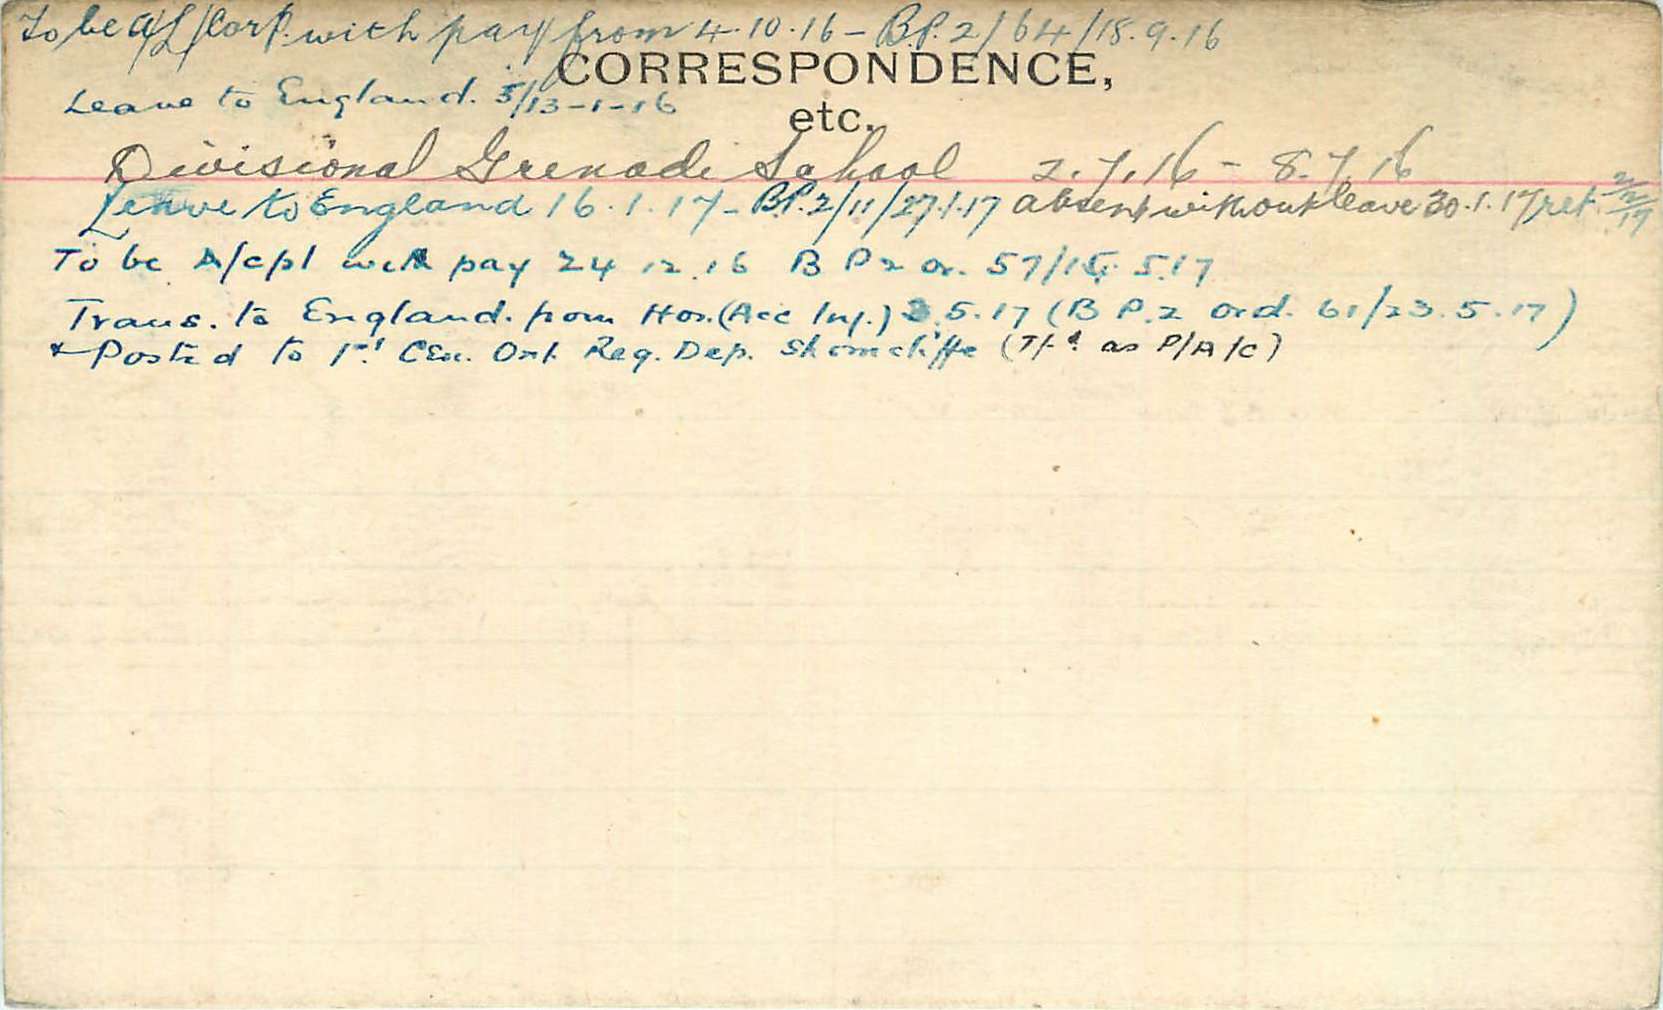 To be a/L/Corp. with pay from 4.10.16 - B.P.2/64/18.9.16
CORRESPONDENCE,
Leave to England. 5/13-1-16
etc.
Divisional Grenade School 2.7.16 - 8.7.16
Leave to England 16.1.17 - B.P.2/11/27.1.17 absent without leave 30.1.17 ret. 2/2/17
To be A/cpl with pay 24 12.16 B P 2 or. 57/15. 5.17
Trans. to England. from Hos. (Acc Inj.) 3.5.17 (B P.2 ord. 61/23.5.17)
& Posted to 1st Cen. Ont. Reg. Dep. Shorncliffe (T/fd. as P/A/C)